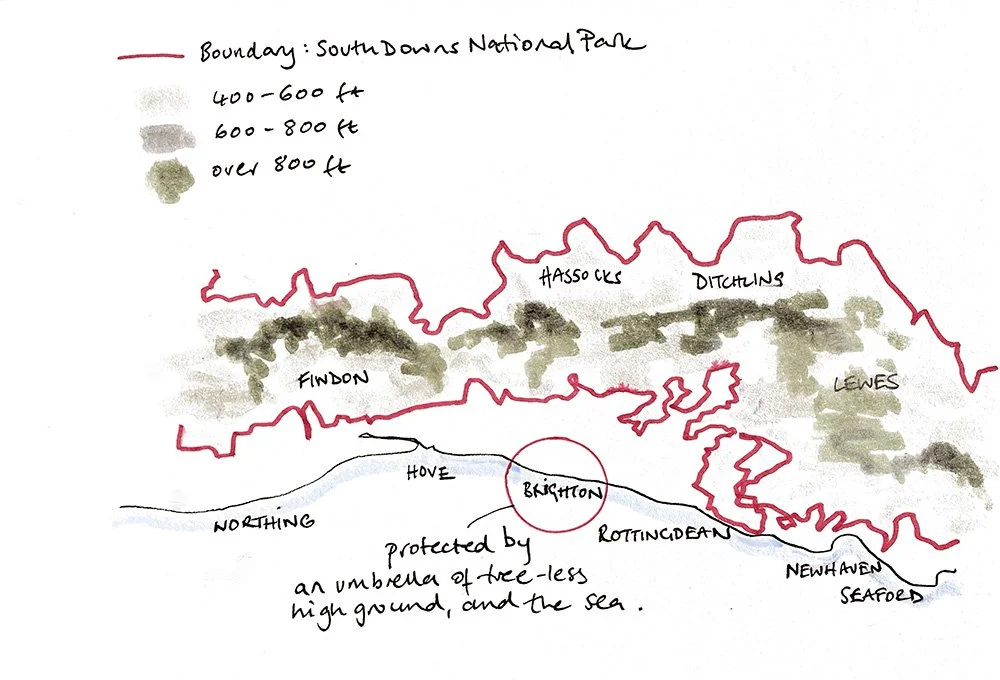 Boundary: South Downs National Park
400-600 ft
600-800 ft
over 800 ft
HASSOCKS
DITCHLING
FINDON
LEWES
HOVE
BRIGHTON
NORTHING
ROTTINGDEAN
protected by
an umbrella of tree-less
high ground, and the sea.
NEWHAVEN
SEAFORD